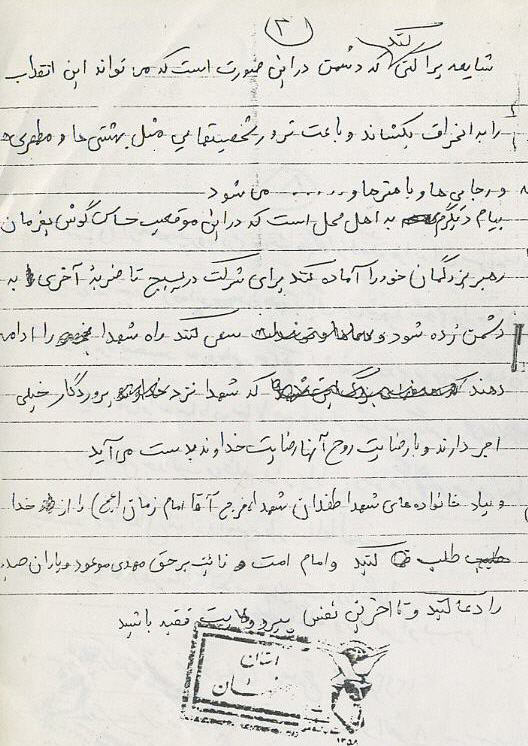 (۳)
کنند
شایعه پراکنی که دشمن در این صورت است که می تواند این انقلاب
را به انحراف بکشاند و باعث ترور شخصیتهایی مثل بهشتی ها و مطهری ها
و رجایی ها و باهنرها و ...... می شود
پیام دیگرم به اهل محل است که در این موقعیت حساس گوش بفرمان
رهبر بزرگمان خود را آماده کنند برای شرکت در بسیج تا ضربهٔ آخری به
دشمن زده شود و سعی کنند راه شهدا را ادامه
دهند که شهدا نزد پروردگار خیلی
اجر دارند و با رضایت روح آنها رضایت خداوند بدست می آید
و بیاد خانواده های شهدا طفلان شهدا، فرج آقا امام زمان (عج) را از خدا
طلب کنید و امام امت و نائب بر حق مهدی موعود و یاران
را دعا کنید و تا آخرین نفس پیرو ولایت فقیه باشید
استان